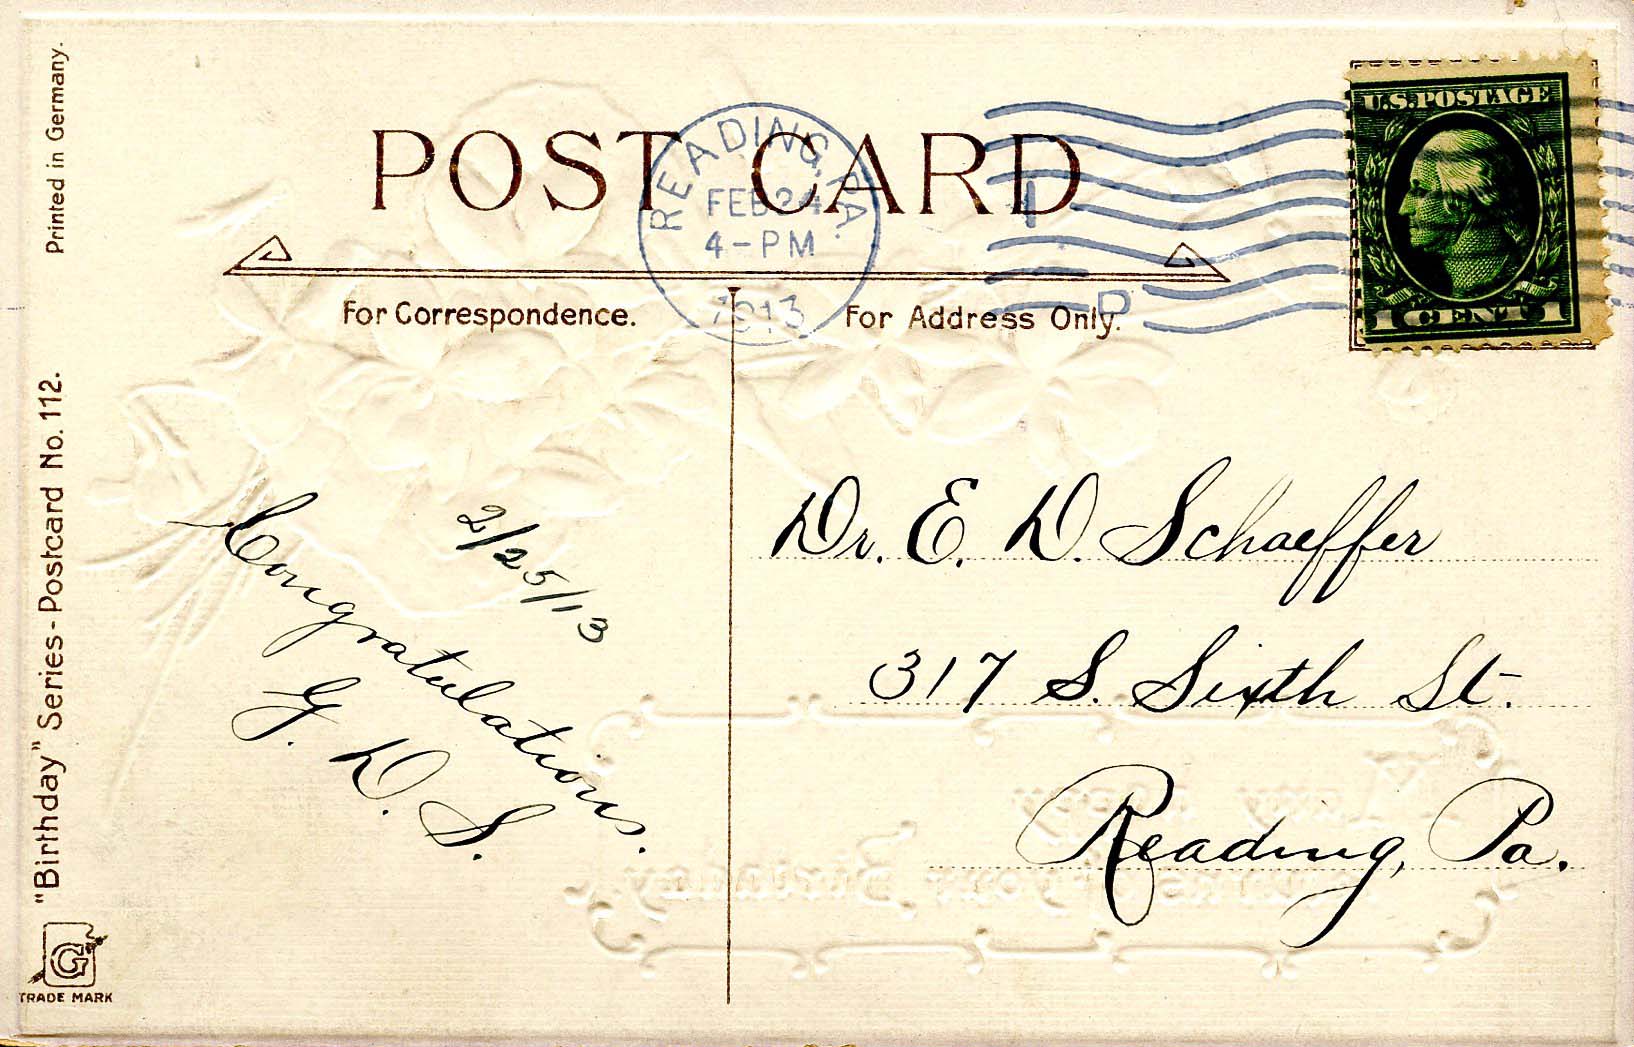 Printed in Germany.
"Birthday" Series - Postcard No. 112.
G
TRADE MARK
POST CARD
READING, PA.
FEB 24
4-PM
1913
1
D
U.S. POSTAGE
1 CENT 1
For Correspondence.
For Address Only.
2/25/13
Congratulations.
G. D. S.
Dr. E. D. Schaeffer
317 S. Sixth St.
Reading, Pa.
Birthday